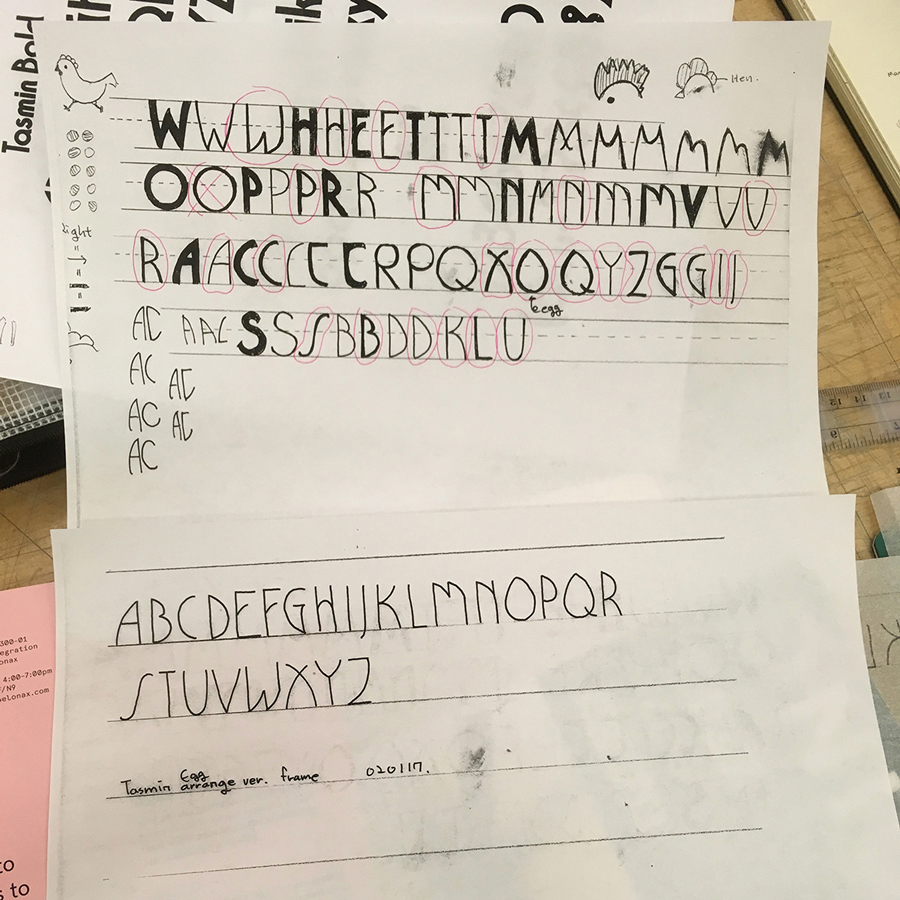 Tasmin Bold
Hen.
W W W H H E E T T T T M M M M M M M
O O P P P R R M M N M N M M V V V
Right
R A A C C C C C R P Q X O Q Y Z G G I J
egg
AC A A C S S S B B D D K L U
AC AC
AC AC
AC
ABCDEFGHIJKLMNOPQR
STUVWXYZ
Egg
Tasmin arrange ver. frame 020117.
300-01
egration
onax
4:00-7:00pm
/N9
elonax.com
to
s to